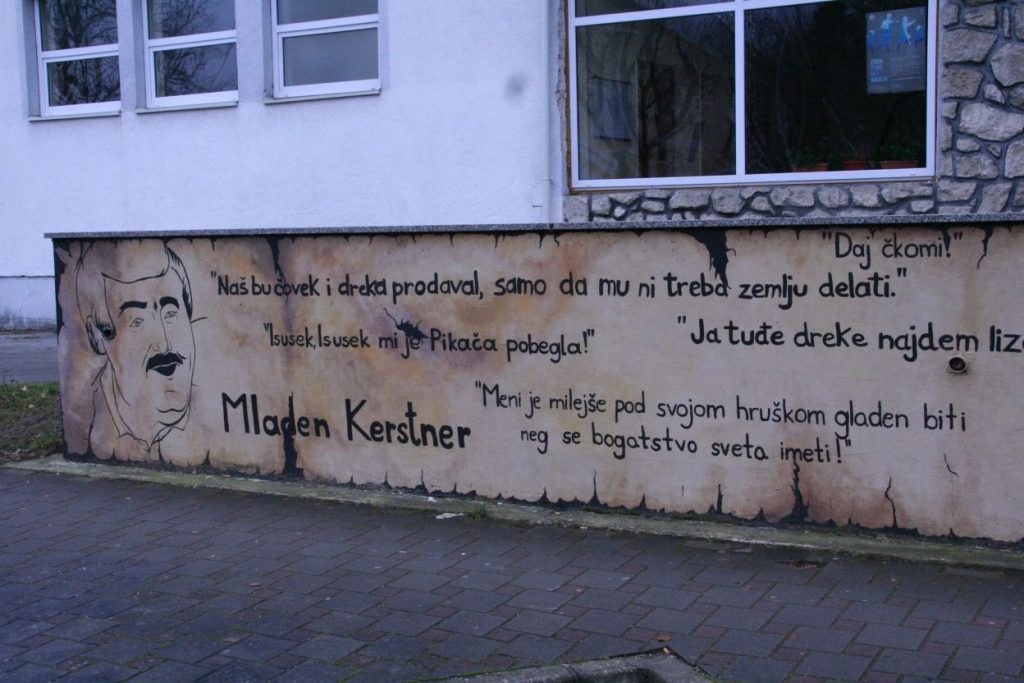 "Daj čkomi!"
"Naš bu čovek i dreka prodaval, samo da mu ni treba zemlju delati."
"Isusek, Isusek mi je Pikača pobegla!"
"Ja tuđe dreke najdem liz
Mladen Kerstner
"Meni je milejše pod svojom hruškom gladen biti
neg se bogatstvo sveta imeti!"